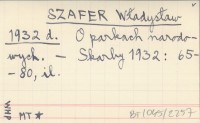 SZAFER Władysław
1932 d. O parkach narodo-
wych. — Skarby 1932: 65-
-80, il.
WHP MT*
BT/065/2257